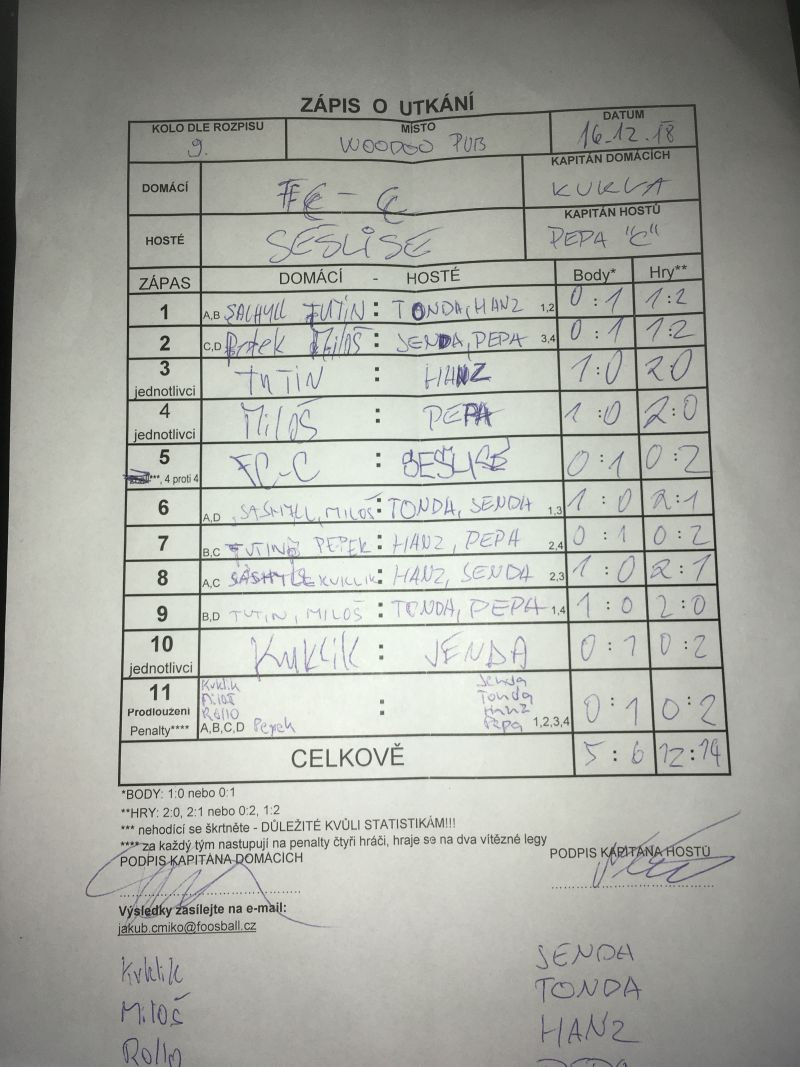 ZÁPIS O UTKÁNÍ
KOLO DLE ROZPISU MÍSTO DATUM
9. WOODOO PUB 16.12.18
DOMÁCÍ FC-C KAPITÁN DOMÁCÍCH
KUKLA
HOSTÉ SESLISE KAPITÁN HOSTŮ
PEPA "C"
ZÁPAS DOMÁCÍ - HOSTÉ Body* Hry**
1 A,B SACHYLL TUTIN : TONDA, HANZ 1,2 0:1 1:2
2 C,D MILOŠ : JENDA, PEPA 3,4 0:1 1:2
3 jednotlivci TUTIN : HANZ 1:0 2:0
4 jednotlivci MILOŠ : PEPA 1:0 2:0
5 ***, 4 proti 4 FC-C : SESLISE 0:1 0:2
6 A,D SASHYLL, MILOŠ : TONDA, JENDA 1,3 1:0 2:1
7 B,C TUTIN PEPEK : HANZ, PEPA 2,4 0:1 0:2
8 A,C KUKLIK : HANZ, JENDA 2,3 1:0 2:1
9 B,D TUTIN, MILOŠ : TONDA, PEPA 1,4 1:0 2:0
10 jednotlivci Kuklik : JENDA 0:1 0:2
11 Kuklik Jenda
Prodloužení Miloš Tonda
Rollo : Hanz 0:1 0:2
Penalty**** A,B,C,D Pepek Pepa 1,2,3,4
CELKOVĚ 5:6 12:14
*BODY: 1:0 nebo 0:1
**HRY: 2:0, 2:1 nebo 0:2, 1:2
*** nehodící se škrtněte - DŮLEŽITÉ KVŮLI STATISTIKÁM!!!
**** za každý tým nastupují na penalty čtyři hráči, hraje se na dva vítězné legy
PODPIS KAPITÁNA DOMÁCÍCH PODPIS KAPITÁNA HOSTŮ
Výsledky zasílejte na e-mail:
jakub.cmiko@foosball.cz
Kuklik JENDA
Miloš TONDA
Rollo HANZ
PEPA